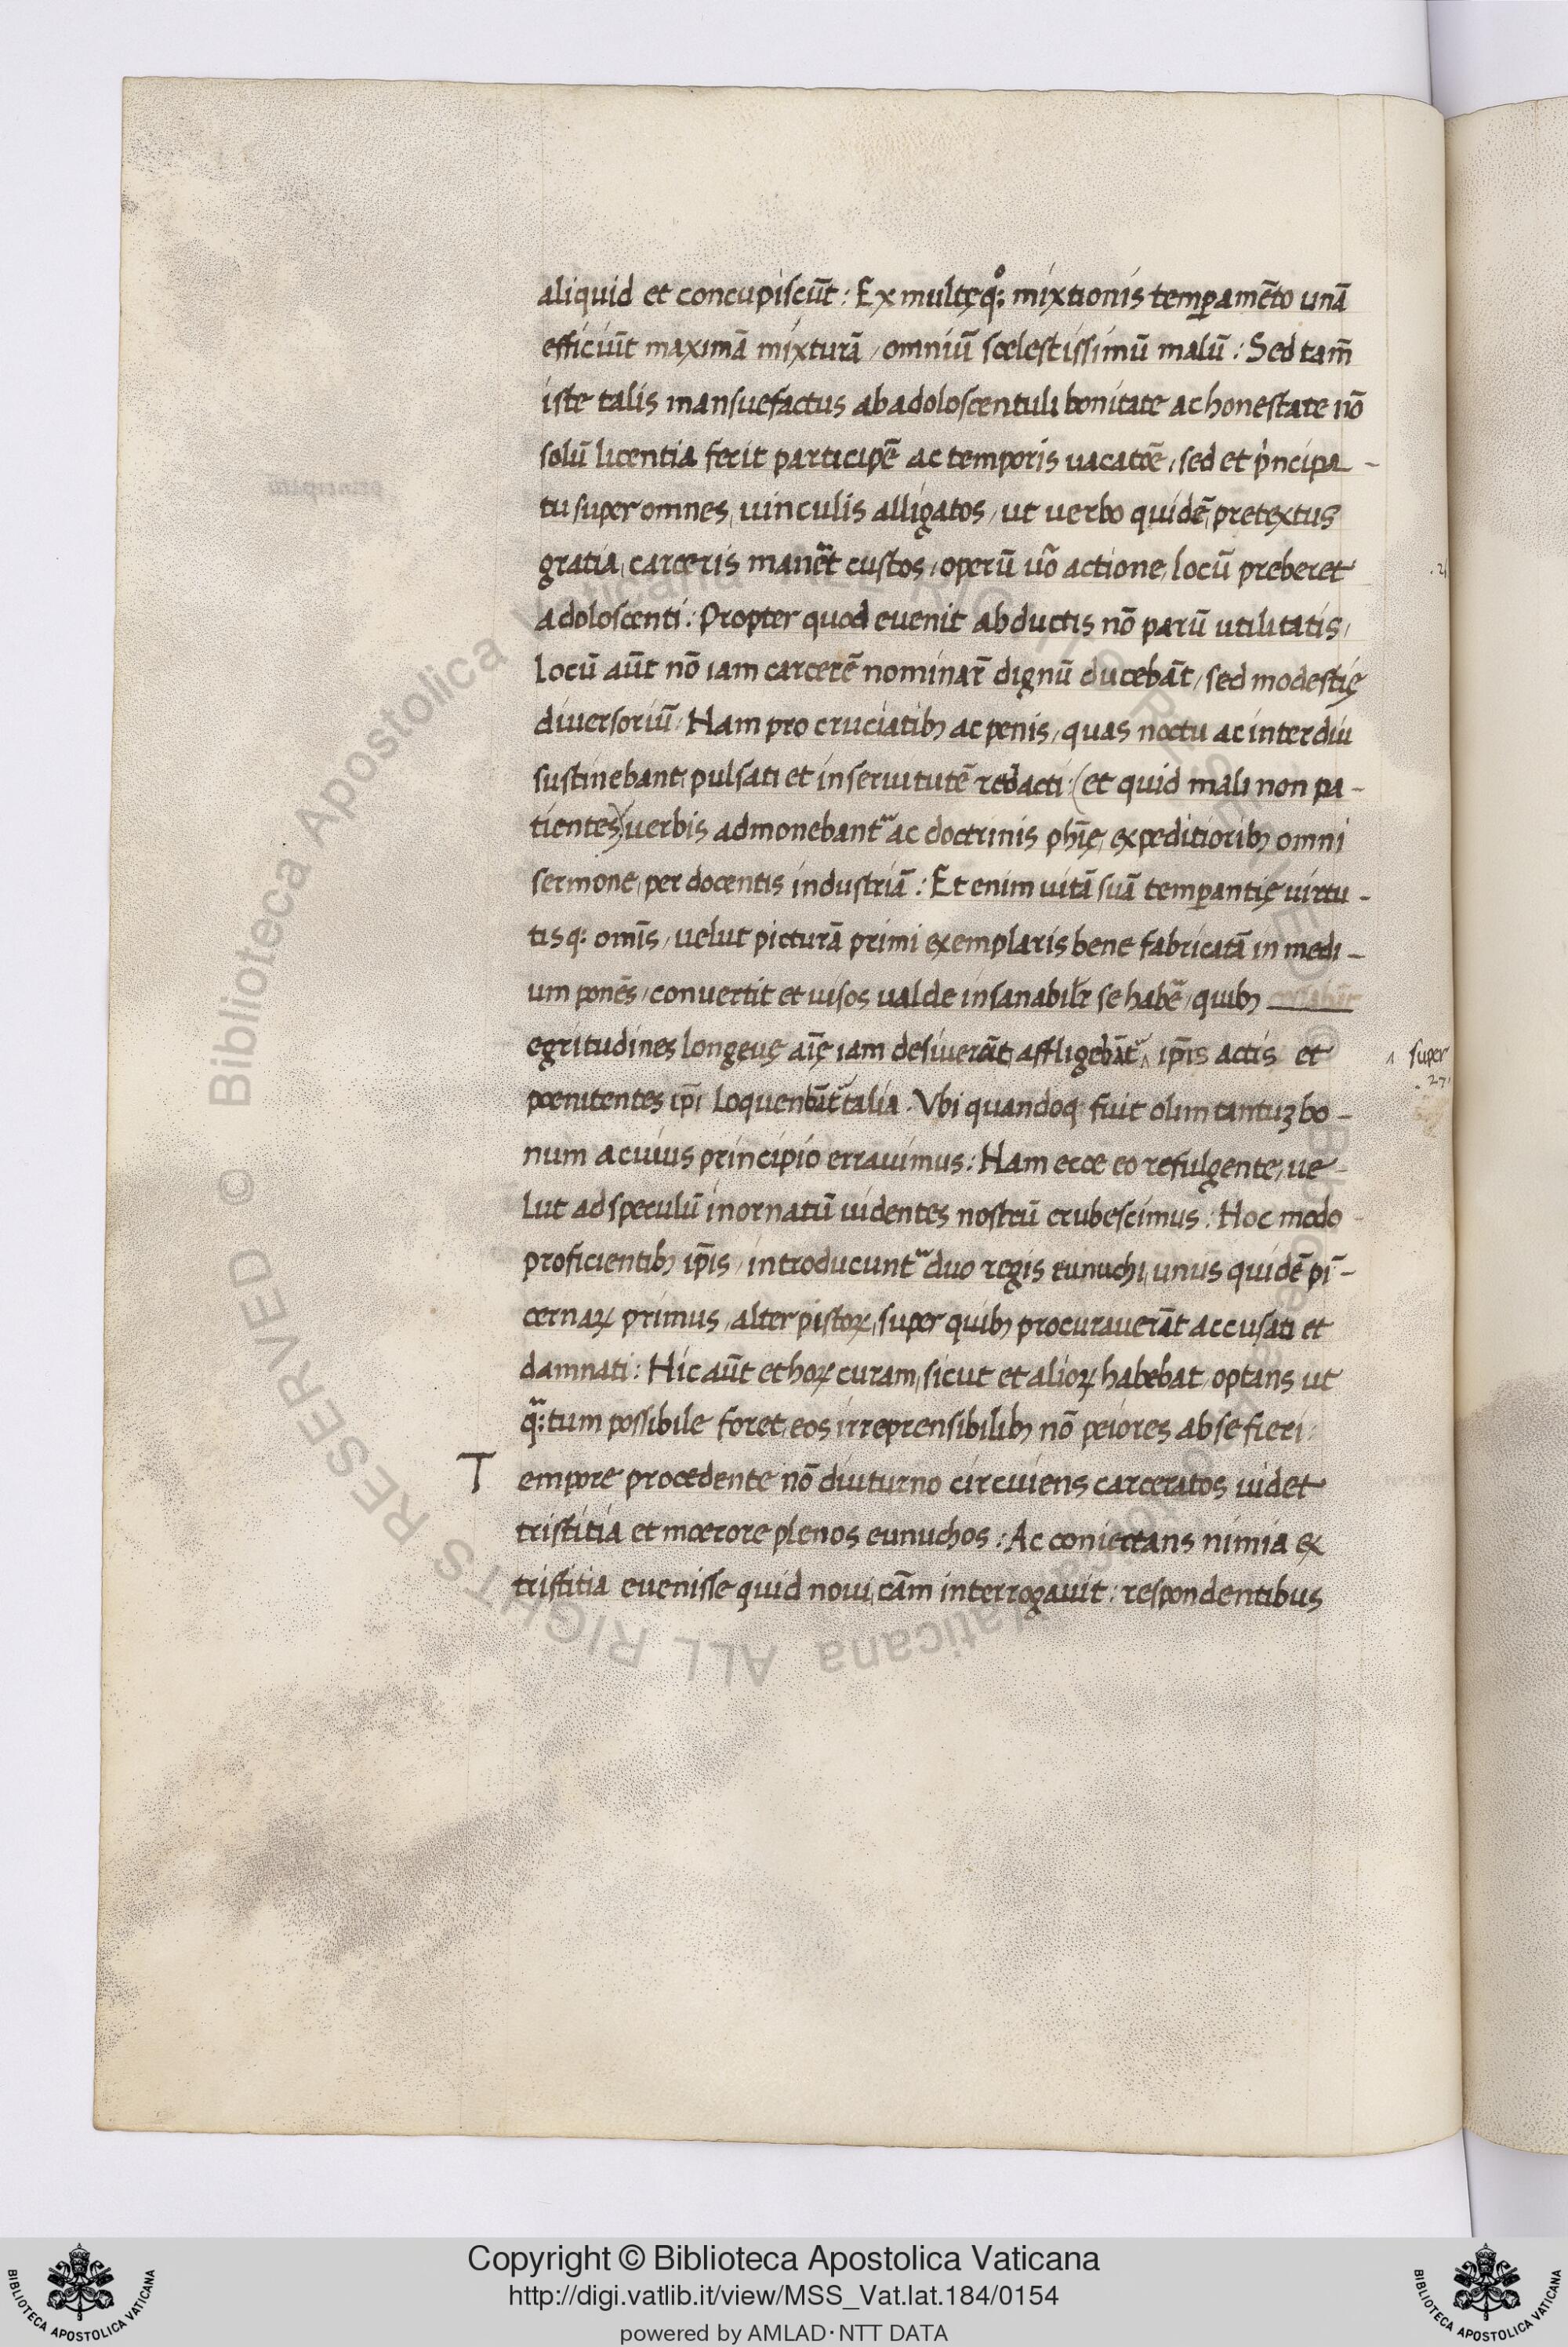 aliquid et concupiscūt : Ex multęq̊; mixtionis temꝑamēto unā
efficiūt maximā mixturā / omniū scelestissimū malū : Sed tam̄
iste talis mansuefactus ab adoloscentuli bonitate ac honestate nō
solū licentia fecit participē ac temporis uacatōe / sed et p̍ncipa -
tu super omnes, uinculis alligatos / ut uerbo quidē, pretextus
gratia, carceris manēt custos / operū u̅o actione, locū preberet
adoloscenti : Propter quod euenit abductis nō parū utilitatis /
Locū aūt nō iam carcerē nominar̄ dignū ducebāt / sed modestię
diuersoriū : Nam pro cruciatibꝫ ac penis / quas noctu ac interdiu
sustinebant, pulsati et in seruitutē redacti : (et quid mali non pa -
tientes) uerbis admonebantᷣ ac doctrinis ph̄ię, expeditioribꝫ omni
sermone, per docentis industriā : Et enim uitā suā temꝑantię uirtu -
tisq; omīs / uelut picturā primi exemplaris bene fabricatā in medi -
um ponēs / conuertit et uisos ualde insanabilr̄ se habē / quibꝫ
egritudines longeuę aīę iam desiuerāt, affligebātᷣ ‸ ip̄is actis et
super
.27.
poenitentes ip̄i loquenbātᷣ talia . Vbi quandoq fuit olim tantuꝫ bo -
num a cuius principio errauimus : Nam ecce eo refulgente, ue -
lut ad speculū inornatū uidentes nostrū erubescimus : Hoc modo
proficientibꝫ ip̄is / introducuntᷣ duo regis eunuchi, unus quidē pi -
cernaꝝ primus / alter pistoꝝ, super quibꝫ procurauerāt accusati et
damnati : Hic aūt et hoꝝ curam, sicut et alioꝝ habebat, optans ut
qᷓ;tum possibile foret, eos irreprensibilibꝫ nō peiores ab se fieri :
Tempore procedente nō diuturno circuiens carceratos uidet
tristitia et moerore plenos eunuchos : Ac coniectans nimia ex
tristitia euenisse quid noui, cām interrogauit : respondentibus
Copyright © Biblioteca Apostolica Vaticana
http://digi.vatlib.it/view/MSS_Vat.lat.184/0154
powered by AMLAD·NTT DATA
BIBLIOTECA APOSTOLICA VATICANA
BIBLIOTECA APOSTOLICA VATICANA
© Biblioteca Apostolica Vaticana ALL RIGHTS RESERVED